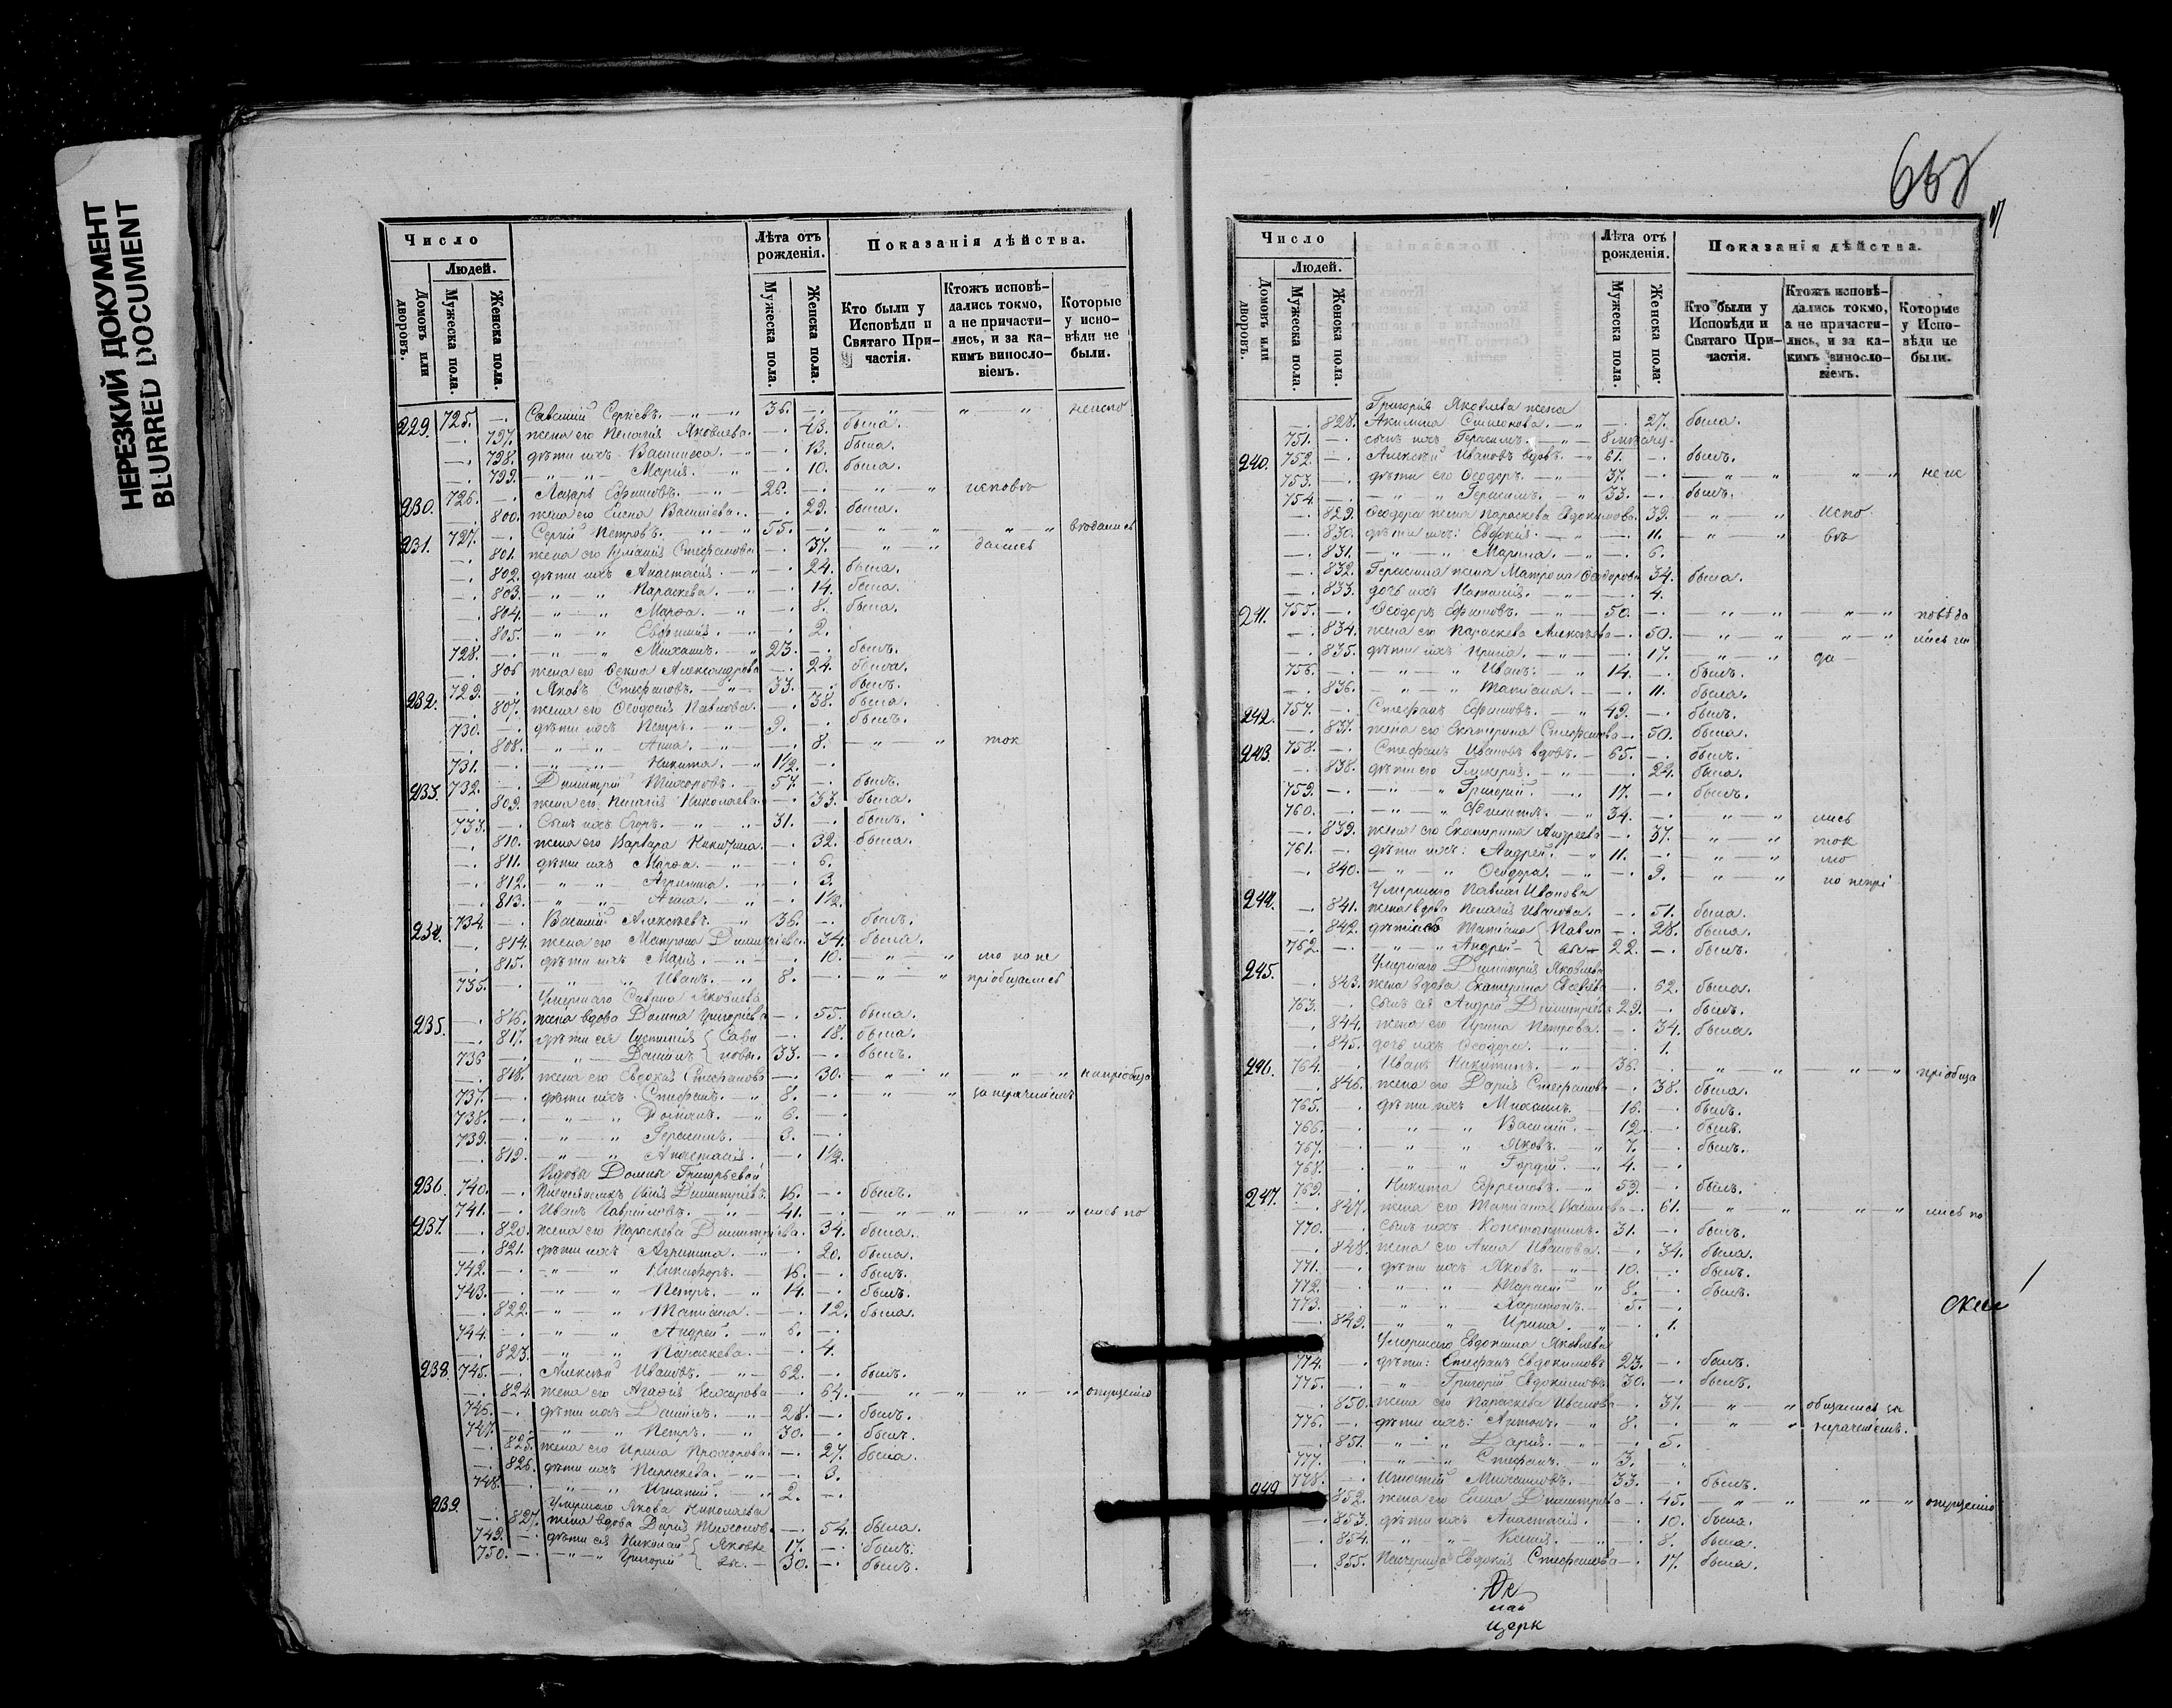 НЕРЕЗКИЙ ДОКУМЕНТ
BLURRED DOCUMENT
Число
Людей.
Домовъ или дворовъ.
Мужеска пола.
Женска пола.
Лѣта отъ рожденія.
Мужеска пола.
Женска пола.
Показанія дѣйства.
Кто были у Исповѣди и Святаго Причастія.
Ктожъ исповѣдались токмо, а не причастились, и за какимъ винословіемъ.
Которые у исповѣди не были.
229. 725. —. Сергіевъ. — „ — „ 36. —. „ — „ „ неиспо
—. 797. жена его Пелагія Яковлева. —. 43. была.
—. 798. дѣти ихъ Василиса. — „ —. 13. была.
—. 799. — „ — „ Марія. — „ —. 10. была.
230. 726. —. Лазарь Ефимовъ. — „ — 26. —. „ — „ исповѣ
—. 800. жена его Елена Василіева. —. 29. была.
231. 727. —. Сергій Петровъ. „ — „ 55. —. „ „ — „ — „ вѣдались
—. 801. жена его Стефанова —. 37. — „ — „ дались
—. 802. дѣти ихъ Анастасія. — „ —. 24. была.
—. 803. — „ — „ Параскева. — „ —. 14. была.
—. 804. — „ — „ Марѳа. — „ —. 8. была.
—. 805. — „ — „ Евфимія. — „ —. 2.
728. —. — „ — „ Михаилъ. — „ 23. —. былъ.
—. 806 жена его Ѳекла Александрова —. 24. была.
232. 729. —. Яковъ Стефановъ. — „ — 33. —. былъ.
—. 807. жена его Ѳеодосія Павлова. —. 38. была.
730. —. дѣти ихъ Петръ. — „ — 9. —. былъ.
—. 808. — „ — „ Анна. — „ —. 8. — „ — „ ток
731. —. — „ — „ Никита. — „ 1½. —.
233. 732. —. Димитрій Тихоновъ. — 57. —. былъ.
—. 809. жена его Пелагія Николаева. —. 53. была.
733. —. Сынъ ихъ Егоръ. — „ — 31. —. былъ.
—. 810. жена его Варвара Никитина. —. 32. была.
—. 811. дѣти ихъ Марѳа. — „ —. 6.
—. 812. — „ — „ —. 3.
—. 813. — „ — „ Анна. — „ —. 1½.
234. 734. —. Василій Алексѣевъ. — „ 36. —. былъ.
—. 814. жена его Матрона Димитріева. 34. была.
—. 815. дѣти ихъ Марія. — „ —. 10. — „ — „ мо но не
735. —. — „ — „ Иванъ. — „ 8. —. — „ — „ пріобщались
Умершаго Яковлева
235. —. 816. жена вдова Домна Григоріева —. 55. была.
—. 817. дѣти ея —. 18. была.
736 —. — „ Даніилъ 33. —. былъ.
—. 818. жена его Евдокія Стефанова —. 30. — „ — „ — „ — „
737. —. дѣти ихъ Стефанъ. — „ 8. —. „ „ за нераченіемъ
738. —. — „ — „ — „ 6. —.
739. —. — „ — „ Герасимъ. — 3. —.
—. 819. — „ — „ Анастасія. —. 1½.
Вдовы Домны Григорьевой
236. 740. —. Племянникъ Илія Димитріевъ. 16. —. былъ.
237. 741. —. Иванъ Гавріиловъ. — „ 41. —. — „ — „ — „ — „ лись по
—. 820. жена его Параскева Димитріева. 34. была.
—. 821. дѣти ихъ — „ —. 20. была.
742. —. — „ — „ Никифоръ. — 16. —. былъ.
743. —. — „ — „ Петръ. — „ 14. —. былъ.
—. 822. — „ — „ Татіана. — —. 12. была.
744. —. — „ — „ Андрей. — „ 6. —.
—. 823. — „ — „ Параскева. — —. 4.
238. 745. —. Алексѣй Ивановъ. — „ — 62. —. былъ.
—. 824. жена его Агаѳія —. 64. — „ — „ „ — „ опущенію
746. —. дѣти ихъ Даніилъ. — „ 28. —. былъ.
747. —. — „ — „ Петръ. — „ 30. —. былъ.
—. 825. жена его Ирина Прохорова. —. 27. была.
—. 826. дѣти ихъ Параскева. — „ —. 3.
748. —. — „ — „ Игнатій. — „ 2. —.
239. Умершаго Якова Николаева
—. 827. жена вдова Дарія —. 54. была.
749. —. дѣти ея Николай Яковле 17. —. былъ.
750. —. — „ Григорій вы. — 30. —. былъ.
Число
Людей.
Домовъ или дворовъ.
Мужеска пола.
Женска пола.
Лѣта отъ рожденія.
Мужеска пола.
Женска пола.
Показанія дѣйства.
Кто были у Исповѣди и Святаго Причастія.
Ктожъ исповѣдались токмо, а не причастились, и за какимъ винословіемъ.
Которые у Исповѣди не были.
Григорія Яковлева жена
—. 828. Акилина —. 27. была.
751. —. сынъ ихъ Герасимъ. — „ 8 мѣсяц.
240. 752. —. Алексѣй Ивановъ вдовъ. — „ 61. —. былъ.
753. —. дѣти его Ѳеодоръ. — „ 37. —. — „ — „ „ — „ не ис
754. —. — „ — „ Герасимъ. — „ 33. —. былъ.
—. 829. Ѳеодора жена Параскева Евдокимова. 39. „ — „ испо
—. 830. дѣти ихъ: Евдокія. — „ —. 11. „ — „ вѣ
—. 831. — „ — „ Марина. — „ —. 6.
—. 832. Герасима жена Матрона Ѳеодорова 34. была.
—. 833. дочь ихъ Наталія. — „ —. 4.
241. 755. —. Ѳеодоръ Ефимовъ. — „ 50. —. „ — „ „ — „ повѣда
—. 834. жена его Параскева Алексѣева —. 50. „ — „ „ — „
—. 835. дѣти ихъ Ирина. — „ —. 17. „ — „ да —
756. —. — „ — „ Иванъ. — „ 14. —. былъ.
—. 836. — „ — „ Татіана. — —. 11. была.
242. 757. —. Стефанъ Ефимовъ. — „ 49. —. былъ.
—. 837. жена его Екатерина Стефанова —. 50. была.
243. 758. —. Стефанъ Ивановъ вдовъ. — 65. —. былъ.
—. 838. дѣти его Гликерія. — „ —. 24. была.
759. —. — „ — „ Григорій. — „ 17. —. былъ.
760. —. — „ — „ Филиппъ. — „ 34. —. „ — „ лись
—. 839. жена его Екатерина Андреева —. 37. „ — „ ток
761. —. дѣти ихъ: Андрей. — „ 11. —. „ — „ мо
—. 840. — „ — „ Ѳеодора. — „ —. 9. „ — „ но непрі
244. Умершаго Павла Иванова
—. 841. жена вдова Пелагія Иванова. —. 51. была.
—. 842. дѣти ихъ Татіана Павло —. 28. была.
762. —. — „ — Андрей вы — 22. —. былъ.
245. Умершаго Димитрія Яковлева
—. 843. жена вдова Екатерина —. 62. была.
763. —. Сынъ ея Андрей Димитріевъ 29. —. былъ.
—. 844. жена его Ирина Петрова. —. 34. была.
—. 845. дочь ихъ Ѳеодора. — „ —. 1.
246. 764. —. Иванъ Никитинъ. — „ 36. —. „ „ „ — „ пріобща
—. 846. жена его Дарія Стефанова —. 38. была.
765. —. дѣти ихъ Михаилъ. — 16. —. былъ.
766. —. „ — „ Василій. — 12. —. былъ.
767. —. „ — „ Яковъ. — „ 7. —. былъ.
768. —. „ — „ Гордій. — „ 4. —.
247. 769. —. Никита Ефремовъ. — „ 59. —. былъ.
—. 847. жена его Татіана —. 61. — „ — „ „ — „ лись по
770. —. сынъ ихъ Константинъ. 31. —. былъ.
—. 848. жена его Анна Иванова. —. 34. была.
771. —. дѣти ихъ Яковъ. — „ 10. —. былъ.
772. —. „ — „ — „ 8. —. былъ.
773. —. „ „ Харитонъ. — 5. —.
—. 849. „ — „ Ирина. — „ —. 1.
Умершаго Евдокима Яковлева
774. —. дѣти: Стефанъ Евдокимовъ 23. —. былъ.
775. —. — „ Григорій Евдокимовъ 30. —. былъ.
—. 850. жена его Параскева Иванова —. 37. — „ — „ общались за
776. —. дѣти ихъ: Антонъ. — „ 8. —. „ „ нераченіемъ.
—. 851. — „ — „ Дарія. — „ —. 5.
777. —. — „ — „ Стефанъ. — „ 3. —.
778. —. Игнатій Михаиловъ. — 33. —. былъ.
852. жена его Елена Димитріева —. 45. — „ — „ — „ опущенію
—. 853. дѣти ихъ Анастасія. — —. 10. была.
—. 854. — „ — „ — „ —. 8. была.
—. 855. Евдокія Стефанова —. 17. была.
церк